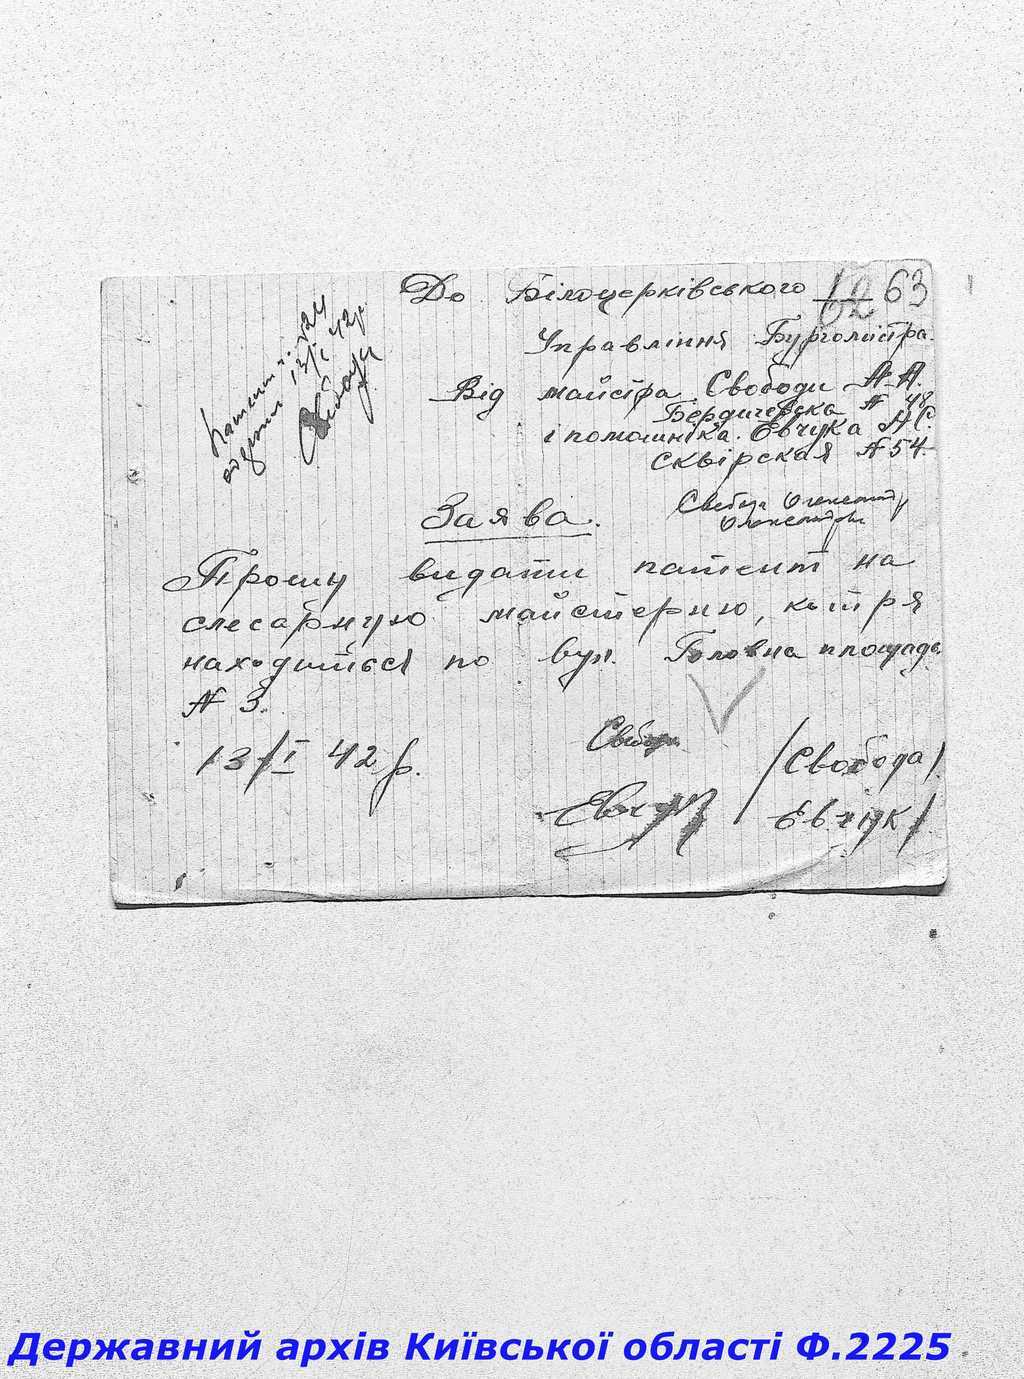 До Білоцерківського 62 63
Управління Бурголистра.
Від майстра Свободи А.А.
Бердичевска № 48
і помошніка. Евчука А С.
сквірская № 54
Патент ч. 24
одержал 13/I 42 р.
Свобода
Свобода Олександр
Олександрови
Заява.
Прошу видати патент на
слесарную майстерню, котря
находиться по вул. Головна площадь
№ 3.
13/I 42 р.
Свобода /Свобода/
Евчук /Евчук/
Державний архів Київської області Ф.2225